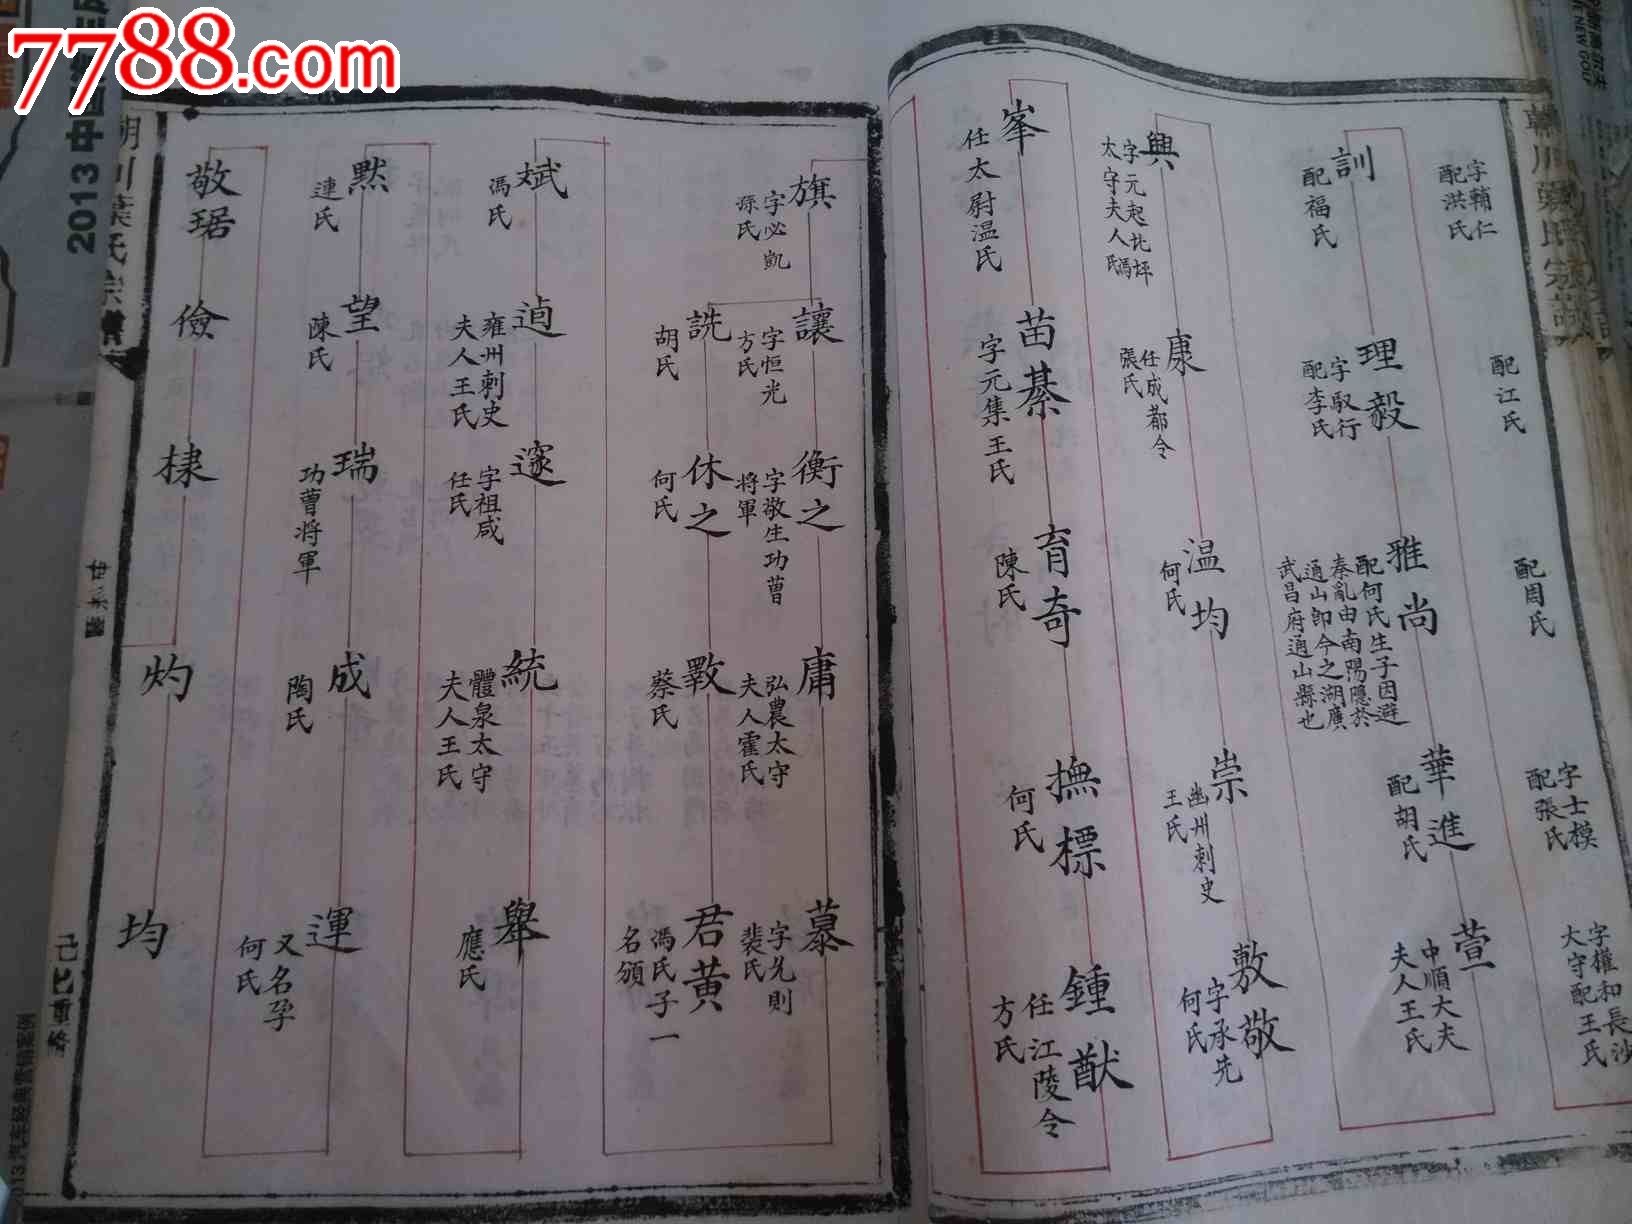 7788.com
2013
字輔仁
配洪氏
配江氏
配周氏
字士模
配張氏
字權和長沙
太守配王氏
訓
配福氏
理毅
字馭行
配李氏
雅尚
配何氏生子因避
秦亂由南陽隱於
通山即今之湖廣
武昌府通山縣也
華進
配胡氏
萱
中順大夫
夫人王氏
興
字元起北坪
太守夫人馮氏
康
任成都令
張氏
温均
何氏
崇
幽州刺史
王氏
敷敬
字承先
何氏
峯
任太尉温氏
苗綦
字元集王氏
育奇
陳氏
撫標
何氏
鍾猷
任江陵令
方氏
旗
字必凱
孫氏
讓
字恒光
方氏
詵
胡氏
衡之
字敬生功曹
將軍
休之
何氏
庸
弘農太守
夫人霍氏
斁
蔡氏
慕
字允則
裴氏
君黄
馮氏子一
名頒
斌
馮氏
逌
雍州刺史
夫人王氏
邃
字祖咸
任氏
統
體泉太守
夫人王氏
舉
應氏
默
連氏
望
陳氏
瑞
功曹將軍
成
陶氏
運
又名孕
何氏
敬琚
儉
棣
灼
均
己巳重修